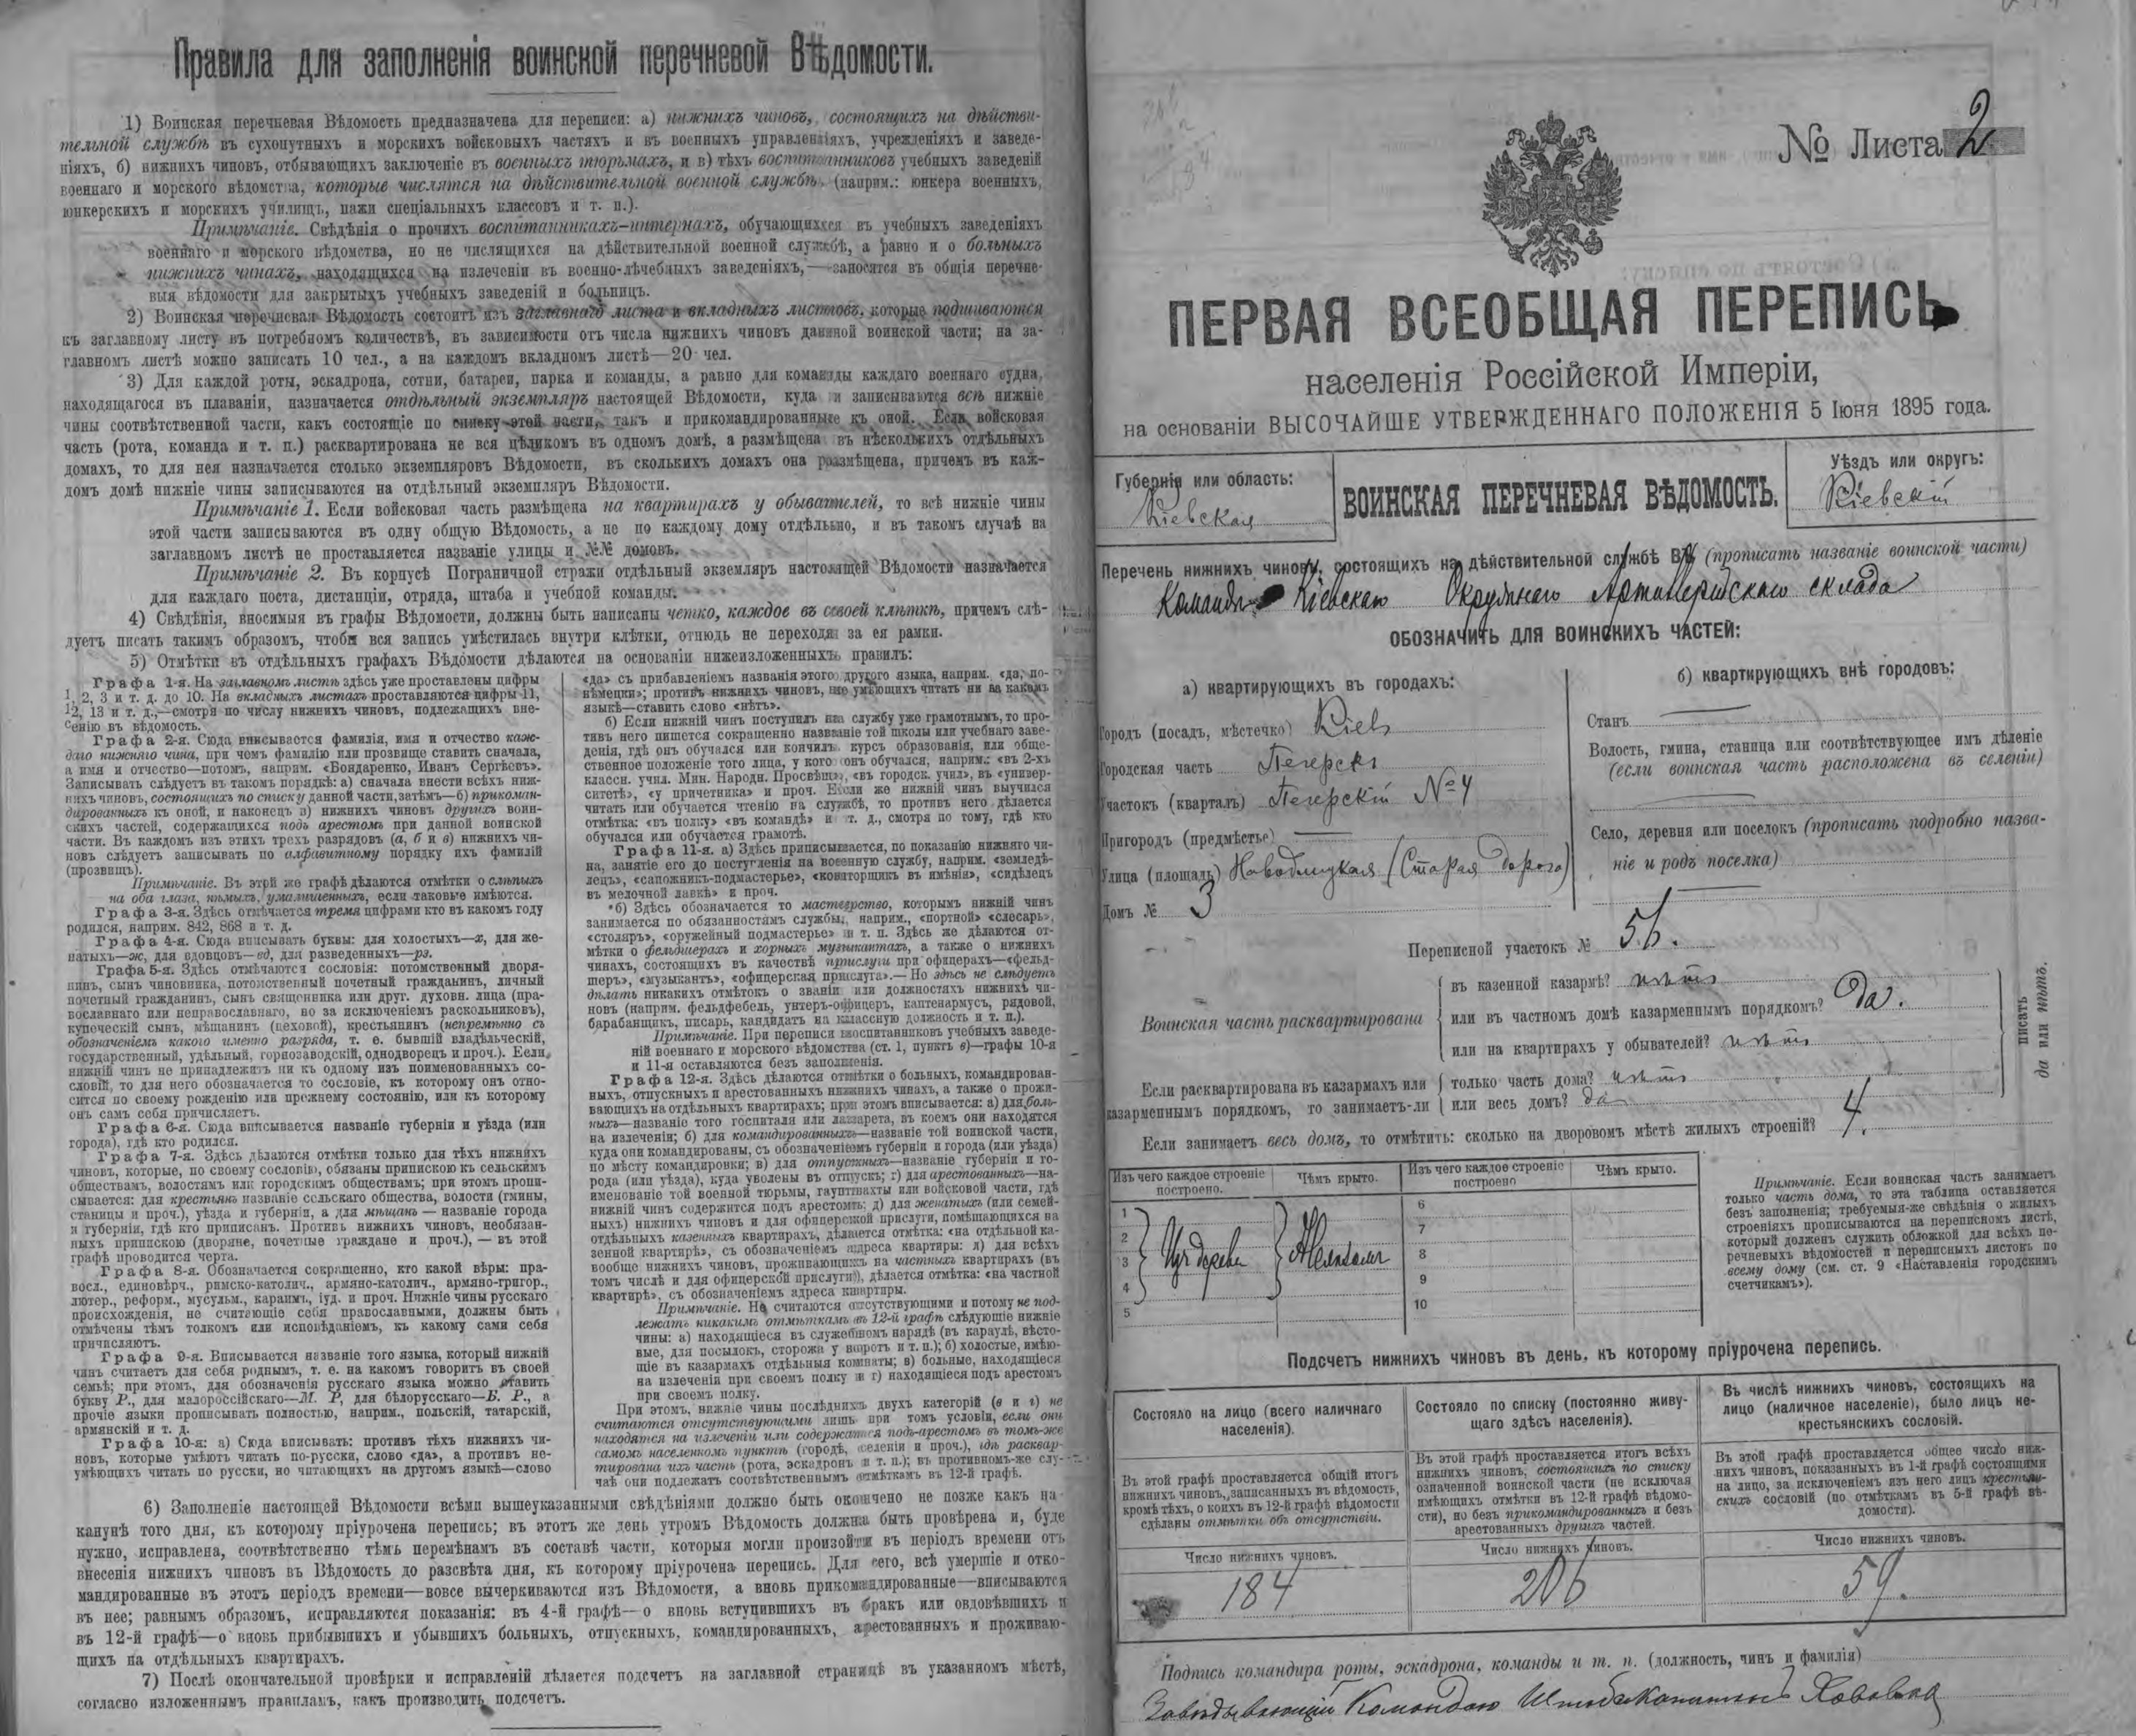 Правила для заполненія воинской перечневой Вѣдомости.
1) Воинская перечневая Вѣдомость предназначена для переписи: а) нижнихъ чиновъ, состоящихъ на дѣйстви-
тельной службѣ въ сухопутныхъ и морскихъ войсковыхъ частяхъ и въ военныхъ управленіяхъ, учрежденіяхъ и заведе-
ніяхъ, б) нижнихъ чиновъ, отбывающихъ заключеніе въ военныхъ тюрьмахъ, и в) тѣхъ воспитанниковъ учебныхъ заведеній
военнаго и морского вѣдомства, которые числятся на дѣйствительной военной службѣ. (наприм.: юнкера военныхъ,
юнкерскихъ и морскихъ училищъ, пажи спеціальныхъ классовъ и т. п.).
Примѣчаніе. Свѣдѣнія о прочихъ воспитанникахъ-интернахъ, обучающихся въ учебныхъ заведеніяхъ
военнаго и морского вѣдомства, но не числящихся на дѣйствительной военной службѣ, а равно и о больныхъ
нижнихъ чинахъ, находящихся на излеченіи въ военно-лѣчебныхъ заведеніяхъ,—заносятся въ общія перечне-
выя вѣдомости для закрытыхъ учебныхъ заведеній и больницъ.
2) Воинская перечневая Вѣдомость состоитъ изъ заглавнаго листа и вкладныхъ листовъ, которые подшиваются
къ заглавному листу въ потребномъ количествѣ, въ зависимости отъ числа нижнихъ чиновъ данной воинской части; на за-
главномъ листѣ можно записать 10 чел., а на каждомъ вкладномъ листѣ—20 чел.
3) Для каждой роты, эскадрона, сотни, батареи, парка и команды, а равно для команды каждаго военнаго судна,
находящагося въ плаваніи, назначается отдѣльный экземпляръ настоящей Вѣдомости, куда и записываются всѣ нижніе
чины соотвѣтственной части, какъ состоящіе по списку этой части, такъ и прикомандированные къ оной. Если войсковая
часть (рота, команда и т. п.) расквартирована не вся цѣликомъ въ одномъ домѣ, а размѣщена въ нѣсколькихъ отдѣльныхъ
домахъ, то для нея назначается столько экземпляровъ Вѣдомости, въ сколькихъ домахъ она размѣщена, причемъ въ каж-
домъ домѣ нижніе чины записываются на отдѣльный экземпляръ Вѣдомости.
Примѣчаніе 1. Если войсковая часть размѣщена на квартирахъ у обывателей, то всѣ нижніе чины
этой части записываются въ одну общую Вѣдомость, а не по каждому дому отдѣльно, и въ такомъ случаѣ на
заглавномъ листѣ не проставляется названіе улицы и №№ домовъ.
Примѣчаніе 2. Въ корпусѣ Пограничной стражи отдѣльный экземпляръ настоящей Вѣдомости назначается
для каждаго поста, дистанціи, отряда, штаба и учебной команды.
4) Свѣдѣнія, вносимыя въ графы Вѣдомости, должны быть написаны четко, каждое въ своей клѣткѣ, причемъ слѣ-
дуетъ писать такимъ образомъ, чтобы вся запись умѣстилась внутри клѣтки, отнюдь не переходя за ея рамки.
5) Отмѣтки въ отдѣльныхъ графахъ Вѣдомости дѣлаются на основаніи нижеизложенныхъ правилъ:
Графа 1-я. На заглавномъ листѣ здѣсь уже проставлены цифры
1, 2, 3 и т. д. до 10. На вкладныхъ листахъ проставляются цифры 11,
12, 13 и т. д.,—смотря по числу нижнихъ чиновъ, подлежащихъ вне-
сенію въ вѣдомость.
Графа 2-я. Сюда вписывается фамилія, имя и отчество каж-
даго нижняго чина, при чемъ фамилію или прозвище ставить сначала,
а имя и отчество—потомъ, наприм. «Бондаренко, Иванъ Сергѣевъ».
Записывать слѣдуетъ въ такомъ порядкѣ: а) сначала внести всѣхъ ниж-
нихъ чиновъ, состоящихъ по списку данной части, затѣмъ—б) прикоман-
дированныхъ къ оной, и наконецъ в) нижнихъ чиновъ другихъ воин-
скихъ частей, содержащихся подъ арестомъ при данной воинской
части. Въ каждомъ изъ этихъ трехъ разрядовъ (а, б и в) нижнихъ чи-
новъ слѣдуетъ записывать по алфавитному порядку ихъ фамилій
(прозвищъ).
Примѣчаніе. Въ этой же графѣ дѣлаются отмѣтки о слѣпыхъ
на оба глаза, нѣмыхъ, умалишенныхъ, если таковые имѣются.
Графа 3-я. Здѣсь отмѣчается тремя цифрами кто въ какомъ году
родился, наприм. 842, 868 и т. д.
Графа 4-я. Сюда вписывать буквы: для холостыхъ—х, для же-
натыхъ—ж, для вдовцовъ—вд, для разведенныхъ—рз.
Графа 5-я. Здѣсь отмѣчаются сословія: потомственный дворя-
нинъ, сынъ чиновника, потомственный почетный гражданинъ, личный
почетный гражданинъ, сынъ священника или друг. духовн. лица (пра-
вославнаго или неправославнаго, но за исключеніемъ раскольниковъ),
купеческій сынъ, мѣщанинъ (цеховой), крестьянинъ (непремѣнно съ
обозначеніемъ какого именно разряда, т. е. бывшій владѣльческій,
государственный, удѣльный, горнозаводскій, однодворецъ и проч.). Если
нижній чинъ не принадлежитъ ни къ одному изъ поименованныхъ со-
словій, то для него обозначается то сословіе, къ которому онъ отно-
сится по своему рожденію или прежнему состоянію, или къ которому
онъ самъ себя причисляетъ.
Графа 6-я. Сюда вписывается названіе губерніи и уѣзда (или
города), гдѣ кто родился.
Графа 7-я. Здѣсь дѣлаются отмѣтки только для тѣхъ нижнихъ
чиновъ, которые, по своему сословію, обязаны припискою къ сельскимъ
обществамъ, волостямъ или городскимъ обществамъ; при этомъ пропи-
сывается: для крестьянъ названіе сельскаго общества, волости (гмины,
станицы и проч.), уѣзда и губерніи, а для мѣщанъ — названіе города
и губерніи, гдѣ кто приписанъ. Противъ нижнихъ чиновъ, необязан-
ныхъ припискою (дворяне, почетные граждане и проч.), — въ этой
графѣ проводится черта.
Графа 8-я. Обозначается сокращенно, кто какой вѣры: пра-
восл., единовѣрч., римско-католич., армяно-католич., армяно-григор.,
лютер., реформ., мусульм., караимъ, іуд. и проч. Нижніе чины русскаго
происхожденія, не считающіе себя православными, должны быть
отмѣчены тѣмъ толкомъ или исповѣданіемъ, къ какому сами себя
причисляютъ.
Графа 9-я. Вписывается названіе того языка, который нижній
чинъ считаетъ для себя роднымъ, т. е. на какомъ говоритъ въ своей
семьѣ; при этомъ, для обозначенія русскаго языка можно ставить
букву Р., для малороссійскаго—М. Р, для бѣлорусскаго—Б. Р., а
прочіе языки прописывать полностью, наприм., польскій, татарскій,
армянскій и т. д.
Графа 10-я: а) Сюда вписывать: противъ тѣхъ нижнихъ чи-
новъ, которые умѣютъ читать по-русски, слово «да», а противъ не-
умѣющихъ читать по русски, но читающихъ на другомъ языкѣ—слово
«да» съ прибавленіемъ названія этого другого языка, наприм. «да, по-
нѣмецки»; противъ нижнихъ чиновъ, не умѣющихъ читать ни на какомъ
языкѣ—ставить слово «нѣтъ».
б) Если нижній чинъ поступилъ на службу уже грамотнымъ, то про-
тивъ него пишется сокращенно названіе той школы или учебнаго заве-
денія, гдѣ онъ обучался или кончилъ курсъ образованія, или обще-
ственное положеніе того лица, у кого онъ обучался, наприм.: «въ 2-хъ
классн. учил. Мин. Народн. Просвѣщ.», «въ городск. учил», въ «универ-
ситетѣ», «у причетника» и проч. Если же нижній чинъ выучился
читать или обучается чтенію на службѣ, то противъ него дѣлается
отмѣтка: «въ полку» «въ командѣ» и т. д., смотря по тому, гдѣ кто
обучался или обучается грамотѣ.
Графа 11-я. а) Здѣсь приписывается, по показанію нижняго чи-
на, занятіе его до поступленія на военную службу, наприм. «земледѣ-
лецъ», «сапожникъ-подмастерье», «конторщикъ въ имѣніи», «сидѣлецъ
въ мелочной лавкѣ» и проч.
б) Здѣсь обозначается то мастерство, которымъ нижній чинъ
занимается по обязанностямъ службы, наприм., «портной» «слесарь»,
«столяръ», «оружейный подмастерье» и т. п. Здѣсь же дѣлаются от-
мѣтки о фельдшерахъ и хорныхъ музыкантахъ, а также о нижнихъ
чинахъ, состоящихъ въ качествѣ прислуги при офицерахъ—«фельд-
шеръ», «музыкантъ», «офицерская прислуга».—Но здѣсь не слѣдуетъ
дѣлать никакихъ отмѣтокъ о званіи или должностяхъ нижнихъ чи-
новъ (наприм. фельдфебель, унтеръ-офицеръ, каптенармусъ, рядовой,
барабанщикъ, писарь, кандидатъ на классную должность и т. п.).
Примѣчаніе. При переписи воспитанниковъ учебныхъ заведе-
ній военнаго и морского вѣдомства (ст. 1, пунктъ в)—графы 10-я
и 11-я оставляются безъ заполненія.
Графа 12-я. Здѣсь дѣлаются отмѣтки о больныхъ, командирован-
ныхъ, отпускныхъ и арестованныхъ нижнихъ чинахъ, а также о прожи-
вающихъ на отдѣльныхъ квартирахъ; при этомъ вписывается: а) для боль-
ныхъ—названіе того госпиталя или лазарета, въ коемъ они находятся
на излеченіи; б) для командированныхъ—названіе той воинской части,
куда они командированы, съ обозначеніемъ губерніи и города (или уѣзда)
по мѣсту командировки; в) для отпускныхъ—названіе губерніи и го-
рода (или уѣзда), куда уволены въ отпускъ; г) для арестованныхъ—на-
именованіе той военной тюрьмы, гауптвахты или войсковой части, гдѣ
нижній чинъ содержится подъ арестомъ; д) для женатыхъ (или семей-
ныхъ) нижнихъ чиновъ и для офицерской прислуги, помѣщающихся на
отдѣльныхъ казенныхъ квартирахъ, дѣлается отмѣтка: «на отдѣльной ка-
зенной квартирѣ», съ обозначеніемъ адреса квартиры: д) для всѣхъ
вообще нижнихъ чиновъ, проживающихъ на частныхъ квартирахъ (въ
томъ числѣ и для офицерской прислуги), дѣлается отмѣтка: «на частной
квартирѣ», съ обозначеніемъ адреса квартиры.
Примѣчаніе. Не считаются отсутствующими и потому не под-
лежатъ никакимъ отмѣткамъ въ 12-й графѣ слѣдующіе нижніе
чины: а) находящіеся въ служебномъ нарядѣ (въ караулѣ, вѣсто-
вые, для посылокъ, сторожа у воротъ и т. п.); б) холостые, имѣю-
щіе въ казармахъ отдѣльныя комнаты; в) больные, находящіеся
на излеченіи при своемъ полку и г) находящіеся подъ арестомъ
при своемъ полку.
При этомъ, нижніе чины послѣднихъ двухъ категорій (в и г) не
считаются отсутствующими лишь при томъ условіи, если они
находятся на излеченіи или содержатся подъ арестомъ въ томъ-же
самомъ населенномъ пунктѣ (городѣ, селеніи и проч.), гдѣ расквар-
тирована ихъ часть (рота, эскадронъ и т. п.); въ противномъ-же слу-
чаѣ они подлежатъ соотвѣтственнымъ отмѣткамъ въ 12-й графѣ.
6) Заполненіе настоящей Вѣдомости всѣми вышеуказанными свѣдѣніями должно быть окончено не позже какъ на
канунѣ того дня, къ которому пріурочена перепись; въ этотъ же день утромъ Вѣдомость должна быть провѣрена и, буде
нужно, исправлена, соотвѣтственно тѣмъ перемѣнамъ въ составѣ части, которыя могли произойти въ періодъ времени отъ
внесенія нижнихъ чиновъ въ Вѣдомость до разсвѣта дня, къ которому пріурочена перепись. Для сего, всѣ умершіе и отко-
мандированные въ этотъ періодъ времени—вовсе вычеркиваются изъ Вѣдомости, а вновь прикомандированные—вписываются
въ нее; равнымъ образомъ, исправляются показанія: въ 4-й графѣ—о вновь вступившихъ въ бракъ или овдовѣвшихъ и
въ 12-й графѣ—о вновь прибывшихъ и убывшихъ больныхъ, отпускныхъ, командированныхъ, арестованныхъ и проживаю-
щихъ на отдѣльныхъ квартирахъ.
7) Послѣ окончательной провѣрки и исправленій дѣлается подсчетъ на заглавной страницѣ въ указанномъ мѣстѣ,
согласно изложеннымъ правиламъ, какъ производить подсчетъ.
№ Листа 2
ПЕРВАЯ ВСЕОБЩАЯ ПЕРЕПИСЬ
населенія Россійской Имперіи,
на основаніи ВЫСОЧАЙШЕ УТВЕРЖДЕННАГО ПОЛОЖЕНІЯ 5 Іюня 1895 года.
Губернія или область:
Кіевская
ВОИНСКАЯ ПЕРЕЧНЕВАЯ ВѢДОМОСТЬ.
Уѣздъ или округъ:
Кіевскій
Перечень нижнихъ чиновъ, состоящихъ на дѣйствительной службѣ въ (прописать названіе воинской части)
Команды Кіевскаго Окружнаго Артиллерійскаго склада
ОБОЗНАЧИТЬ ДЛЯ ВОИНСКИХЪ ЧАСТЕЙ:
а) квартирующихъ въ городахъ:
Городъ (посадъ, мѣстечко) Кіевъ
Городская часть Печерскъ
Участокъ (кварталъ) Печерскій № 4
Пригородъ (предмѣстье)
Улица (площадь) (Старая дорога)
Домъ № 3
б) квартирующихъ внѣ городовъ:
Станъ
Волость, гмина, станица или соотвѣтствующее имъ дѣленіе
(если воинская часть расположена въ селеніи)
Село, деревня или поселокъ (прописать подробно назва-
ніе и родъ поселка)
Переписной участокъ № 56.
Воинская часть расквартирована
въ казенной казармѣ? нѣтъ
или въ частномъ домѣ казарменнымъ порядкомъ? Да.
или на квартирахъ у обывателей? нѣтъ
Если расквартирована въ казармахъ или
казарменнымъ порядкомъ, то занимаетъ-ли
только часть дома? нѣтъ
или весь домъ? да
писать
да или нѣтъ.
Если занимаетъ весь домъ, то отмѣтить: сколько на дворовомъ мѣстѣ жилыхъ строеній? 4.
Изъ чего каждое строеніе построено.
Чѣмъ крыто.
Изъ чего каждое строеніе построено
Чѣмъ крыто.
1
2
3
4
5
Изъ дерева
Желѣзомъ
6
7
8
9
10
Примѣчаніе. Если воинская часть занимаетъ
только часть дома, то эта таблица оставляется
безъ заполненія; требуемыя-же свѣдѣнія о жилыхъ
строеніяхъ прописываются на переписномъ листѣ,
который долженъ служить обложкой для всѣхъ пе-
речневыхъ вѣдомостей и переписныхъ листовъ по
всему дому (см. ст. 9 «Наставленія городскимъ
счетчикамъ»).
Подсчетъ нижнихъ чиновъ въ день, къ которому пріурочена перепись.
Состояло на лицо (всего наличнаго
населенія).
В этой графѣ проставляется общій итогъ
нижнихъ чиновъ, записанныхъ въ вѣдомость,
кромѣ тѣхъ, о коихъ въ 12-й графѣ вѣдомости
сдѣланы отмѣтки объ отсутствіи.
Число нижнихъ чиновъ.
184
Состояло по списку (постоянно живу-
щаго здѣсь населенія).
Въ этой графѣ проставляется итогъ всѣхъ
нижнихъ чиновъ, состоящихъ по списку
означенной воинской части (не исключая
имѣющихъ отмѣтки въ 12-й графѣ вѣдомо-
сти), но безъ прикомандированныхъ и безъ
арестованныхъ другихъ частей.
Число нижнихъ чиновъ.
206
Въ числѣ нижнихъ чиновъ, состоящихъ на
лицо (наличное населеніе), было лицъ не-
крестьянскихъ сословій.
Въ этой графѣ проставляется общее число ниж-
нихъ чиновъ, показанныхъ въ 1-й графѣ состоящими
на лицо, за исключеніемъ изъ него лицъ крестьян-
скихъ сословій (по отмѣткамъ въ 5-й графѣ вѣ-
домости).
Число нижнихъ чиновъ.
59.
Подпись командира роты, эскадрона, команды и т. п. (должность, чинъ и фамилія)
Завѣдывающій Командою Штабсъ-Капитанъ